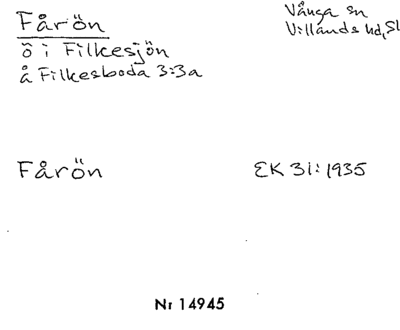 Fårön
Vånga sn
Villands hd, Sk
ö i Filkesjön
å Filkesboda 3:3a
Fårön
EK 31:1935
Nr 14945